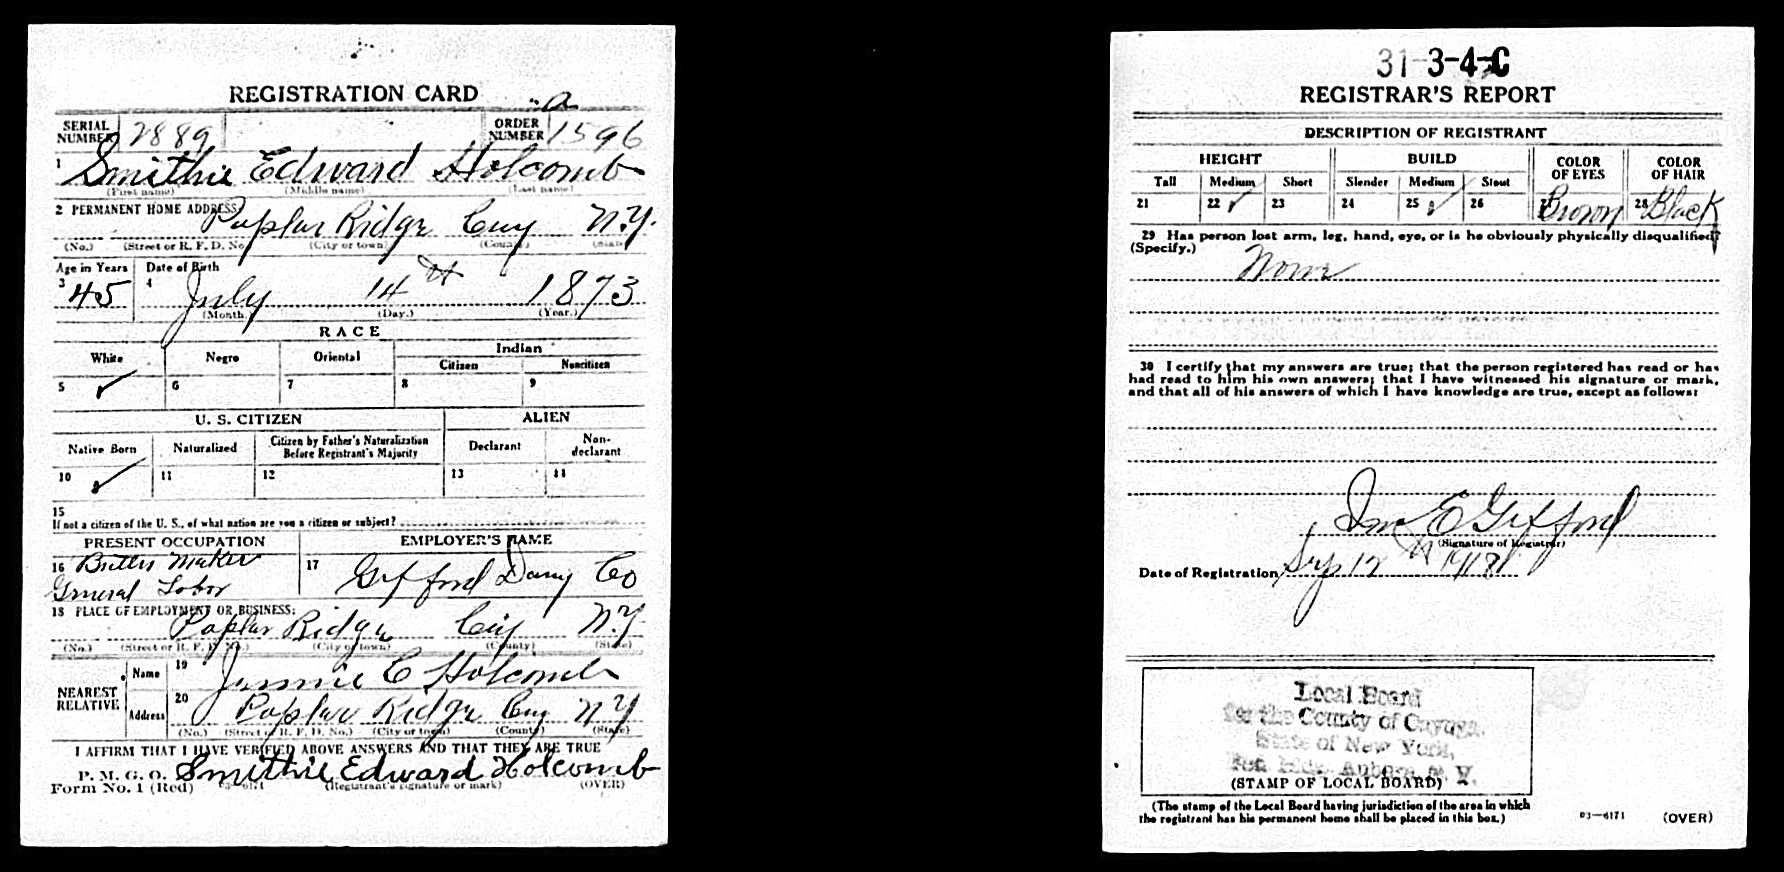 REGISTRATION CARD
a
SERIAL NUMBER 2889 ORDER NUMBER 1596
1 Smithie Edward Holcomb
(First name) (Middle name) (Last name)
2 PERMANENT HOME ADDRESS: Poplar Ridge Cuy N.Y.
(No.) (Street or R. F. D. No.) (City or town) (County) (State)
Age in Years Date of Birth
3 45 4 July 14th 1873
(Month.) (Day.) (Year.)
RACE
White Negro Oriental Indian
Citizen Noncitizen
5 ✓ 6 7 8 9
U. S. CITIZEN ALIEN
Native Born Naturalized Citizen by Father's Naturalization Before Registrant's Majority Declarant Non-declarant
10 ✓ 11 12 13 14
15
If not a citizen of the U. S., of what nation are you a citizen or subject?
PRESENT OCCUPATION EMPLOYER'S NAME
16 Butter Maker
General Labor 17 Gifford Dairy Co
18 PLACE OF EMPLOYMENT OR BUSINESS:
Poplar Ridge Cuy N.Y
(No.) (Street or R. F. D. No.) (City or town) (County) (State)
NEAREST RELATIVE Name 19 Jennie C Holcomb
Address 20 Poplar Ridge Cuy N Y
(No.) (Street or R. F. D. No.) (City or town) (County) (State)
I AFFIRM THAT I HAVE VERIFIED ABOVE ANSWERS AND THAT THEY ARE TRUE
P. M. G. O.
Form No. 1 (Red) 03-6171 Smithie Edward Holcomb
(Registrant's signature or mark) (OVER)
31-3-4-C
REGISTRAR'S REPORT
DESCRIPTION OF REGISTRANT
HEIGHT BUILD COLOR OF EYES COLOR OF HAIR
Tall Medium Short Slender Medium Stout
21 22 ✓ 23 24 25 ✓ 26 27 Brown 28 Black
29 Has person lost arm, leg, hand, eye, or is he obviously physically disqualified?
(Specify.) None
30 I certify that my answers are true; that the person registered has read or has
had read to him his own answers; that I have witnessed his signature or mark,
and that all of his answers of which I have knowledge are true, except as follows:
E Gifford
(Signature of Registrar)
Date of Registration Sep 12 1918
Local Board
for the County of Cayuga,
State of New York,
Auburn, N. Y.
(STAMP OF LOCAL BOARD)
(The stamp of the Local Board having jurisdiction of the area in which
the registrant has his permanent home shall be placed in this box.)
03-6171 (OVER)